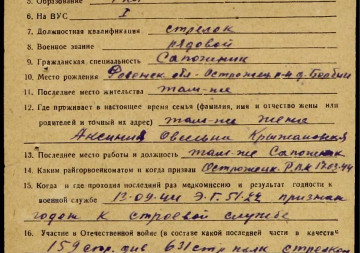 5. Образование
6. На ВУС I
7. Должностная квалификация стрелок
8. Военное звание рядовой
9. Гражданская специальность Сапожник
10. Место рождения Ровенск. обл. Остроженец. р-н д.
11. Последнее место жительства там-же
12. Где проживает в настоящее время семья (фамилия, имя и отчество жены или
родителей и точный их адрес) там-же жена
Аксиния Крыжановская
13. Последнее место работы и должность там-же Сапожник
14. Каким райгорвоенкоматом и когда призван
15. Когда и где проходил последний раз медкомиссию и результат годности к
военной службе 13-09-44 Э.Г. 5122 признан
годен к строевой службе
16. Участие в Отечественной войне (в составе какой последней части в качеств
159 стр. див 631 стр полк стрелком